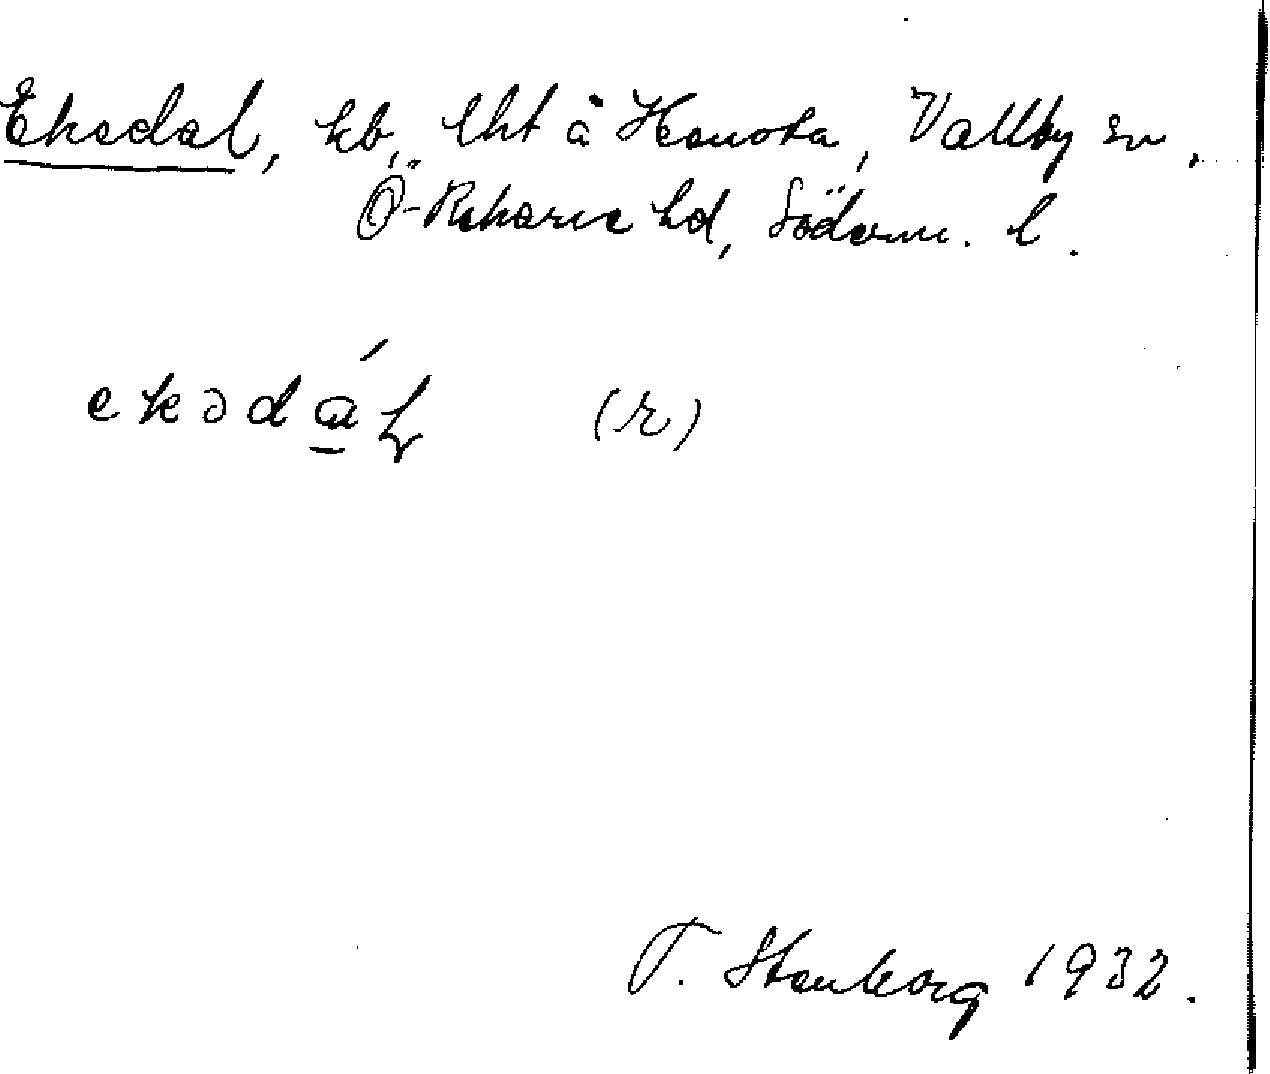 Ekedal, hb, lht å Hanosta, Vallby sn,
Ö-Rekarne hd, Söderm. l.
ekədál (r)
T. Stenborg 1932.